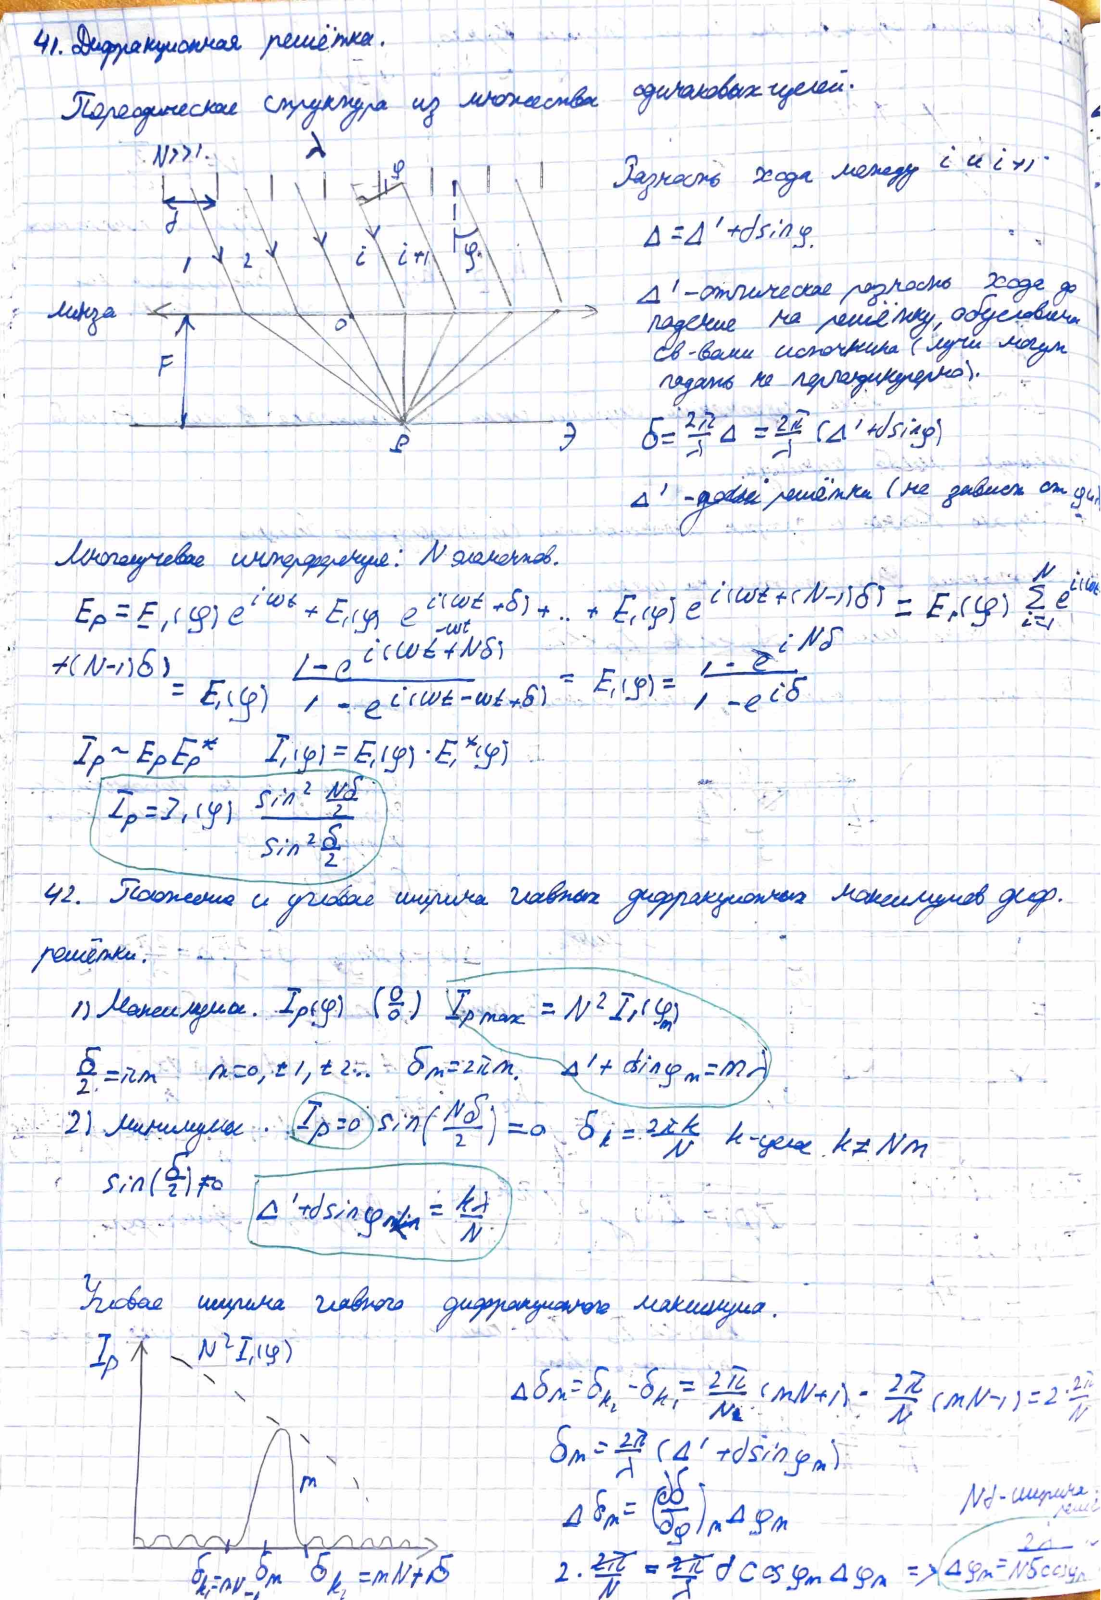 41. Дифракционная решётка.
Переодическая структура из множества одинаковых щелей.
N>>1.
λ
φ
d
1
2
i
i+1
φ.
линза
O
F
P
Э
Разность хода между i и i+1
Δ = Δ' + dsinφ.
Δ' - оптическая разность хода до
падения на решётку, обусловлена
св-вами источника (лучи могут
падать не перпендикулярно).
δ = 2π/λ Δ = 2π/λ (Δ' + dsinφ)
Δ' - решётки (не зависит от
Многолучевая интерференция: N элементов.
E_P = E₁(φ) e^{iωt} + E₁(φ) e^{i(ωt+δ)} + .. + E₁(φ) e^{i(ωt+(N-1)δ)} = E₁(φ) Σ_{i=1}^{N} e^{i(ωt
+(N-1)δ) = E₁(φ) (1 - e^{i(ωt-ωt+Nδ)})/(1 - e^{i(ωt-ωt+δ)}) = E₁(φ) = (1 - e^{iNδ})/(1 - e^{iδ})
I_P ~ E_P E_P* I₁(φ) = E₁(φ) · E₁*(φ)
I_P = I₁(φ) sin² (Nδ/2) / sin² (δ/2)
42. Положение и угловая ширина главных дифракционных максимумов диф.
решётки.
1) Максимума. I_P(φ) (0/0) I_{P max} = N² I₁(φ_m)
δ/2 = πm m=0, ±1, ±2.. δ_m = 2πm. Δ' + dsinφ_m = mλ
2) минимума. I_P = 0 sin(Nδ/2) = 0 δ_k = 2πk/N k-целое k≠Nm
sin(δ/2) ≠ 0
Δ' + dsinφ_min = kλ/N
Угловая ширина главного дифракционного максимума.
I_P
N² I₁(φ)
m
δ_{k₁}=mN-1
δ_m
δ_{k₂} = mN+1
δ
Δδ_m = δ_{k₂} - δ_{k₁} = 2π/N (mN+1) - 2π/N (mN-1) = 2·2π/N
δ_m = 2π/λ (Δ' + dsinφ_m)
Δδ_m = (∂δ/∂φ)_m Δφ_m
Nd - ширина
2· 2π/N = 2π/λ d cosφ_m Δφ_m => Δφ_m = 2λ/Nδcosφ_m